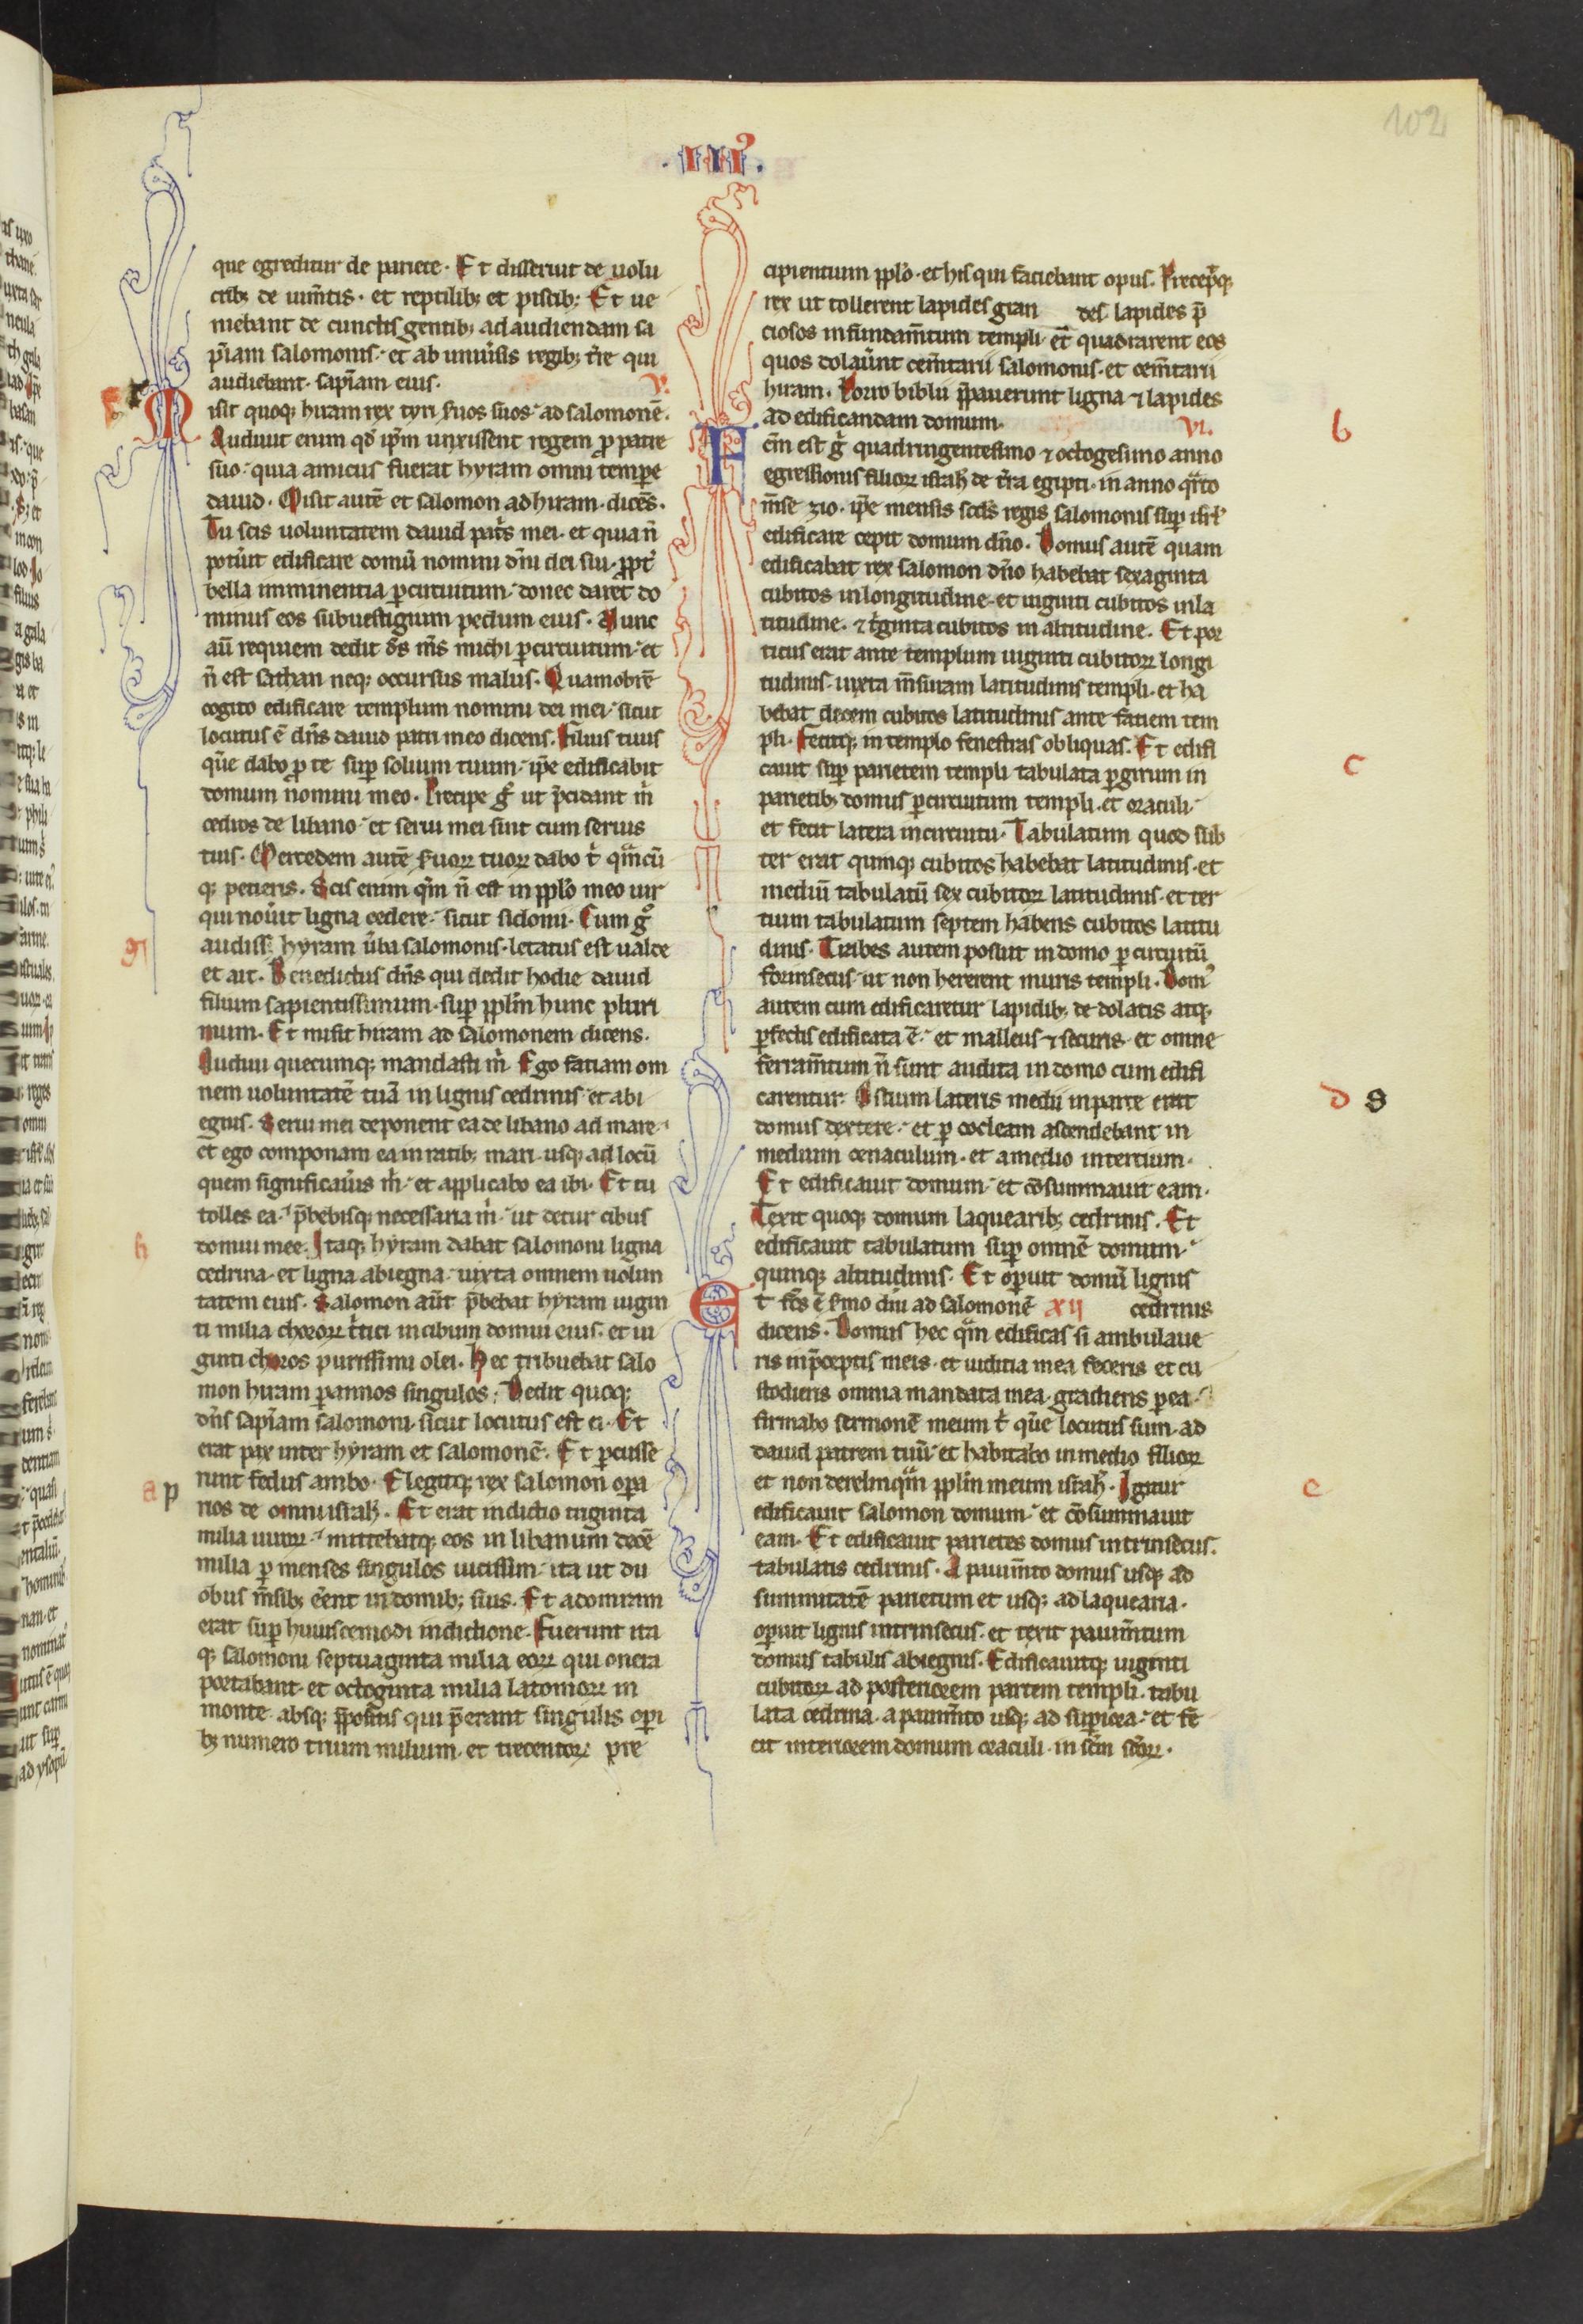 102
.III⁹.
que egreditur de pariete. Et disseruit de uolu
crib; de iumētis. et reptilib; et piscib; Et ue
niebant de cunctis gentib; ad audiendam sa
p̄iam salomonis. et ab uniu̾sis regib; t̾re qui
audiebant sapīam eius. V.
Misit quoq; hiram rex tyri s̾uos suos ad salomonē.
Audiuit enim qd̾ ip̄m unxissent regem p̱ patre
suo. quia amicus fuerat hyram omni temp̱e
dauid. Misit autē et salomon ad hiram. dicēs.
Tu scis uoluntatem dauid pat̾s mei. et quia n̄
potu̾it edificare domū nomini dn̄i dei sui. ꝓpt̾
bella imminentia ꝑ circuitum. donec daret do
minus eos sub uestigium pedum eius. Nunc
aū requiem dedit d̄s m̄s michi ꝑ circuitum. et
n̄ est sathan neq; occursus malus. Quamobrē
cogito edificare templum nomini dei mei. sicut
locutus ē dn̄s dauid patri meo dicens. Filius tuus
quē dabo ꝓ te sup̱ solium tuum. ip̄e edificabit
domum nomini meo. Precipe g̊ ut p̄cidant m̄
cedros de libano. et serui mei sint cum seruis
tuis. Mercedem autē s̾uoꝝ tuoꝝ dabo t̾ qᵐcū
q; petieris. Scis enim qm̄ n̄ est in pp̄lo meo uir
qui nou̾it ligna cedere. sicut sidonii. Cum g̊
g
audiss; hyram u̾ba salomonis. letatus est ualde
et ait. Benedictus dn̄s qui dedit hodie dauid
filium sapientissimum. sup̱ pp̄lm hunc pluri
mum. Et misit hiram ad salomonem dicens.
Audiui quecumq; mandasti m̄. Ego fatiam om
nem uoluntatē tuā in lignis cedrinis et abi
egnis. Serui mei deponent ea de libano ad mare.
et ego componam ea in ratib; mari. usq; ad locū
quem significau̾is m̄. et applicabo ea ibi. Et tu
tolles ea. p̄bebisq; necessaria m̄. ut detur cibus
h
domui mee. Itaq; hyram dabat salomoni ligna
cedrina. et ligna abiegna. iuxta omnem uolun
tatem eius. Salomon aūt p̄bebat hyram uigin
ti milia choroꝝ t̾tici in cibum domui eius. et ui
ginti choros purissimi olei. Hec tribuebat salo
mon hiram ꝑ annos singulos. Dedit quoq;
dn̄s sapīam salomoni. sicut locutus est ei. Et
erat pax inter hyram et salomonē. Et ꝑcusse
a p
runt fedus ambo. Elegitq; rex salomon oꝑa
rios de omni isrаh̄l. Et erat indictio triginta
milia uiroꝝ. mittebatq; eos in libanum decē
milia ꝑ menses singulos uicissim. ita ut du
obus m̄sib; eēnt in domib; suis. Et adoniram
erat sup̱ huiuscemodi indictione. Fuerunt ita
q; salomoni septuaginta milia eoꝝ qui onera
portabant. et octoginta milia latomoꝝ in
monte. absq; p̄positis qui p̄erant singulis oꝑi
b; numero trium milium. et trecentoꝝ pre
cipientium pp̄lo. et his qui fatiebant opus. Precep̄q;
rex ut tollerent lapides gran des. lapides p̄
ciosos in fundam̄tum templi. et quadrarent eos
quos dolaūnt cem̄tarii salomonis. et cem̄tarii
hiram. Porro biblii p̄pauerunt ligna ⁊ lapides
ad edificandam domum. VI.
b
Fcm̄ est g̊ quadringentesimo ⁊ octogesimo anno
egressionis filioꝝ isrаh̄l de t̾ra egipti. in anno qᵃrto
m̄se zio. ip̄e mensis scds̄ regis salomonis sup̱ isrl̄.
edificare cepit domum dn̄o. Domus autē quam
edificabat rex salomon dn̄o habebat sexaginta
cubitos in longitudine. et uiginti cubitos in la
titudine. ⁊ t̾ginta cubitos in altitudine. Et por
ticus erat ante templum uiginti cubitoꝝ longi
tudinis. iuxta m̄suram latitudinis templi. et ha
bebat decem cubitos latitudinis ante fatiem tem
pli. Fecitq; in templo fenestras obliquas. Et edifi
c
cauit sup̱ parietem templi tabulata ꝑ girum in
parietib; domus ꝑ circuitum templi. et oraculi.
et fecit latera in circuitu. Tabulatum quod sub
ter erat quinq; cubitos habebat latitudinis. et
mediū tabulatū sex cubitoꝝ latitudinis. et ter
tium tabulatum septem habens cubitos latitu
dinis. Trabes autem posuit in domo ꝑ circuitū
forinsecus. ut non hererent muris templi. Dom⁹
autem cum edificaretur lapidib; de dolatis atq;
ꝑfectis edificata ē. et malleus ⁊ securis et omne
ferram̄tum n̄ sunt audita in domo cum edifi
d s
carentur. Ostium lateris medii in parte erat
domus dextere. et ꝑ cocleam ascendebant in
medium cenaculum. et a medio in tertium.
Et edificauit domum. et cōsummauit eam.
Texit quoq; domum laquearib; cedrinis. Et
edificauit tabulatum sup̱ omnē domum.
quinq; altitudinis. Et oꝑuit domū lignis
Et fcs̄ ē s̾mo dn̄i ad salomonē XII cedrinis
dicens. Domus hec qᵃm edificas si ambulaue
ris in p̄ceptis meis. et iuditia mea feceris et cu
stodieris omnia mandata mea. gradiens ꝑ ea.
firmabo sermonē meum t̾ quē locutus sum ad
dauid patrem tuū. et habitabo in medio filioꝝ
e
et non derelinqᵃm pp̄lm meum isrаh̄l. Igitur
edificauit salomon domum. et cōsummauit
eam. Et edificauit parietes domus intrinsecus.
tabulatis cedrinis. A pauim̄to domus usq; ad
summitatē parietum et usq; ad laquearia.
oꝑuit lignis intrinsecus. et texit pauim̄tum
domus tabulis abiegnis. Edificauitq; uiginti
cubitoꝝ ad posteriorem partem templi. tabu
lata cedrina. a pauim̄to usq; ad suꝑiora. et fe
cit interiorem domum oraculi. in scm̄ scōꝝ.